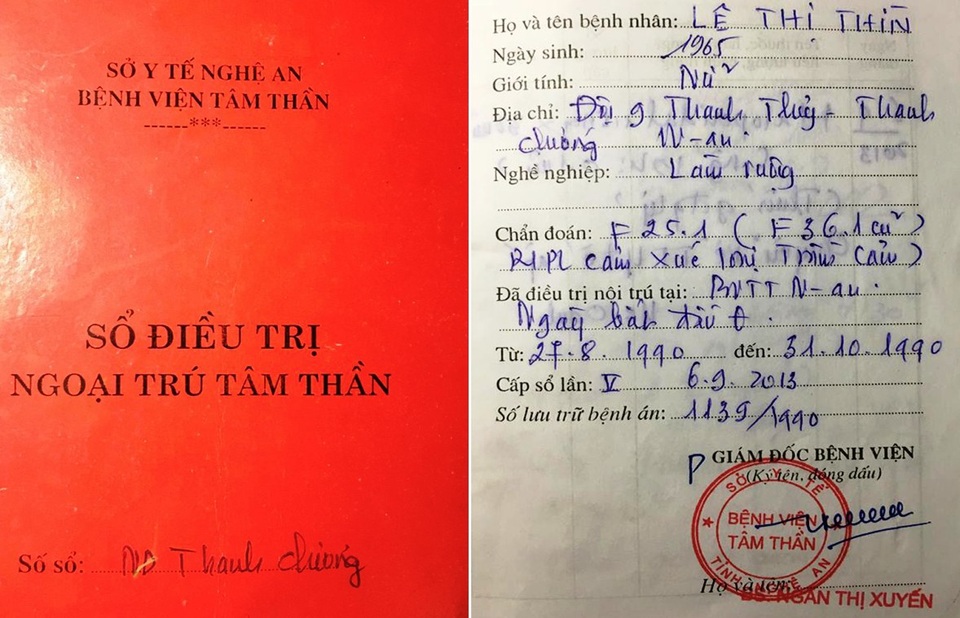 SỞ Y TẾ NGHỆ AN
BỆNH VIỆN TÂM THẦN
------***------
SỔ ĐIỀU TRỊ
NGOẠI TRÚ TÂM THẦN
Số sổ: Thanh Chương
Họ và tên bệnh nhân: LÊ THỊ THÌN
Ngày sinh: 1965
Giới tính: Nữ
Địa chỉ: Đội 9 Thanh Thủy - Thanh
Chương N-an.
Nghề nghiệp: Làm ruộng
Chẩn đoán: F 25.1 ( F 36.1 cũ )
RLPL cảm xúc loại trầm cảm )
Đã điều trị nội trú tại: BVTT N-an.
Ngày bắt đầu
Từ: 27.8.1990 đến: 31.10.1990
Cấp sổ lần: V 6.9.2013
Số lưu trữ bệnh án: 1139/1990
P GIÁM ĐỐC BỆNH VIỆN
(Ký tên, đóng dấu)
SỞ Y TẾ
BỆNH VIỆN
TÂM THẦN
TỈNH NGHỆ AN
Họ và tên:
BS. NGÂN THỊ XUYẾN